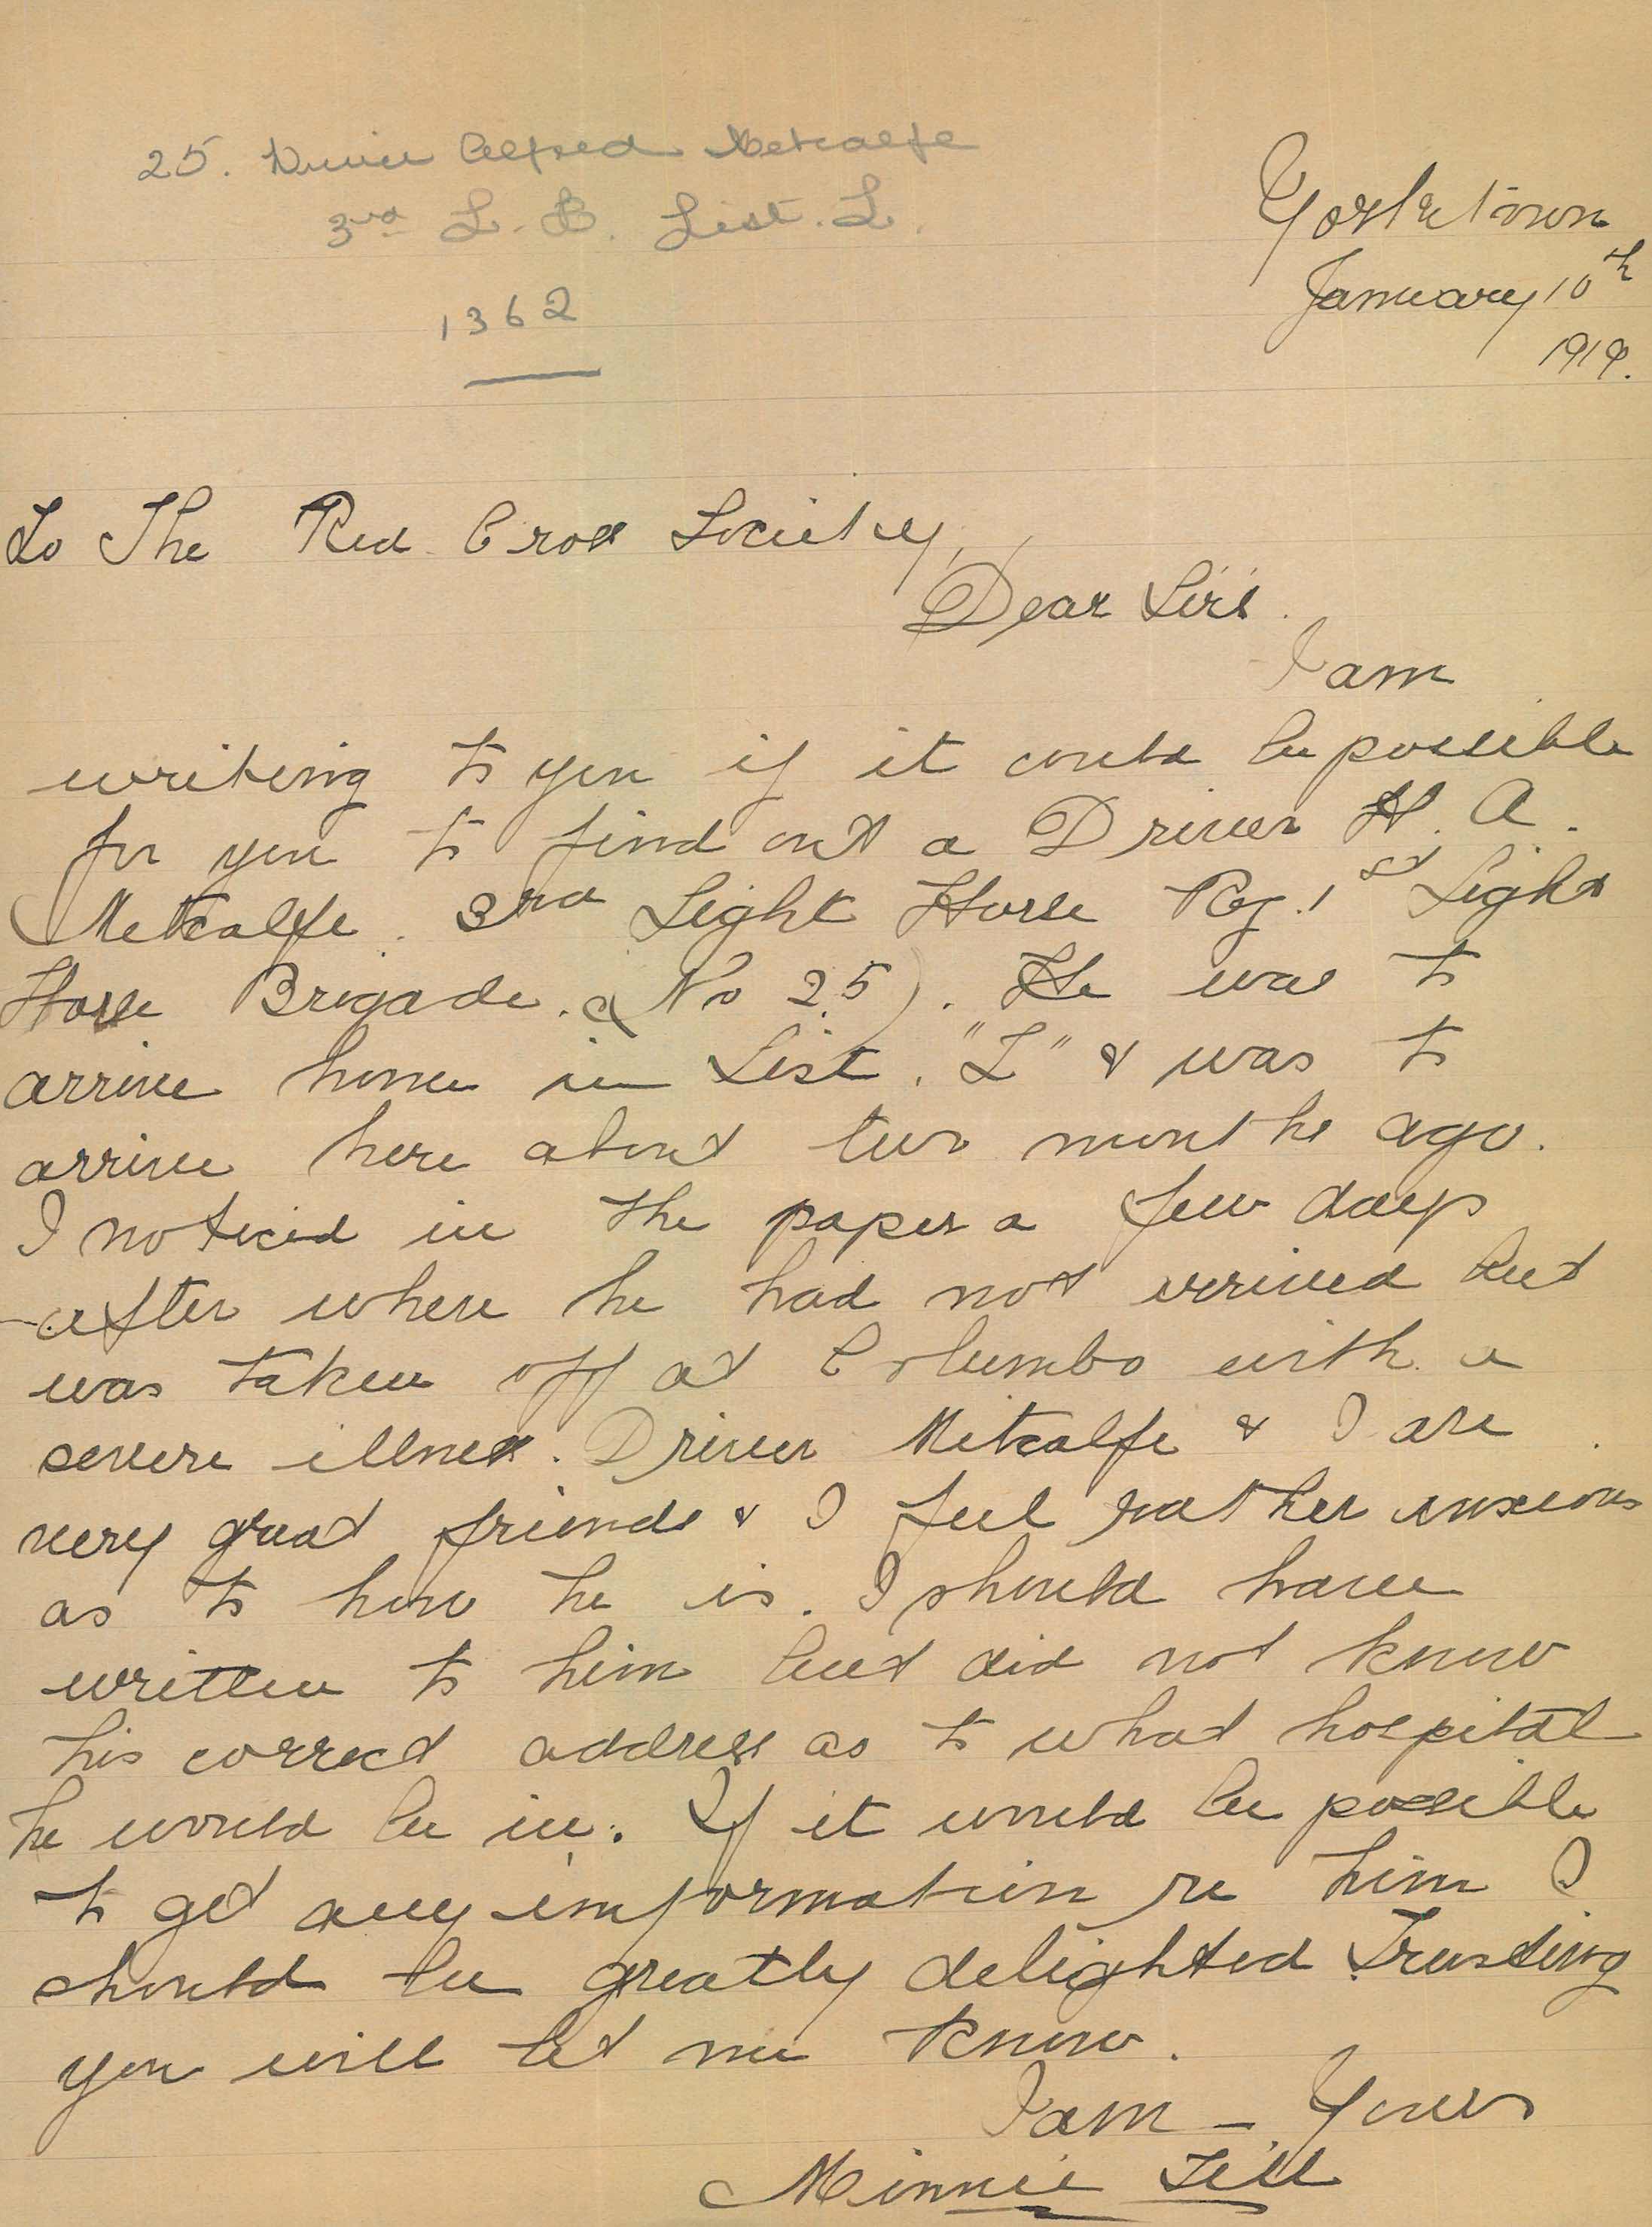 25. Driver Alfred Metcalfe
3rd L. B. List. L.
1362
Yorketown
January 10th
1919.
To The Red Cross Society,
Dear Sirs.
I am
writing to you if it could be possible
for you to find out a Driver H. A.
Metcalfe. 3rd Light Horse Reg. 1st Light
Horse Brigade. (No 25). He was to
arrive home in List. "L" & was to
arrive here about two months ago.
I noticed in the paper a few days
after where he had not arrived but
was taken off at Columbo with a
severe illness. Driver Metcalfe & I are
very great friends & I feel rather anxious
as to how he is. I should have
written to him but did not know
his correct address as to what hospital
he would be in. If it would be possible
to get any information re him I
should be greatly delighted Trusting
you will let me know.
I am – Yours
Minnie